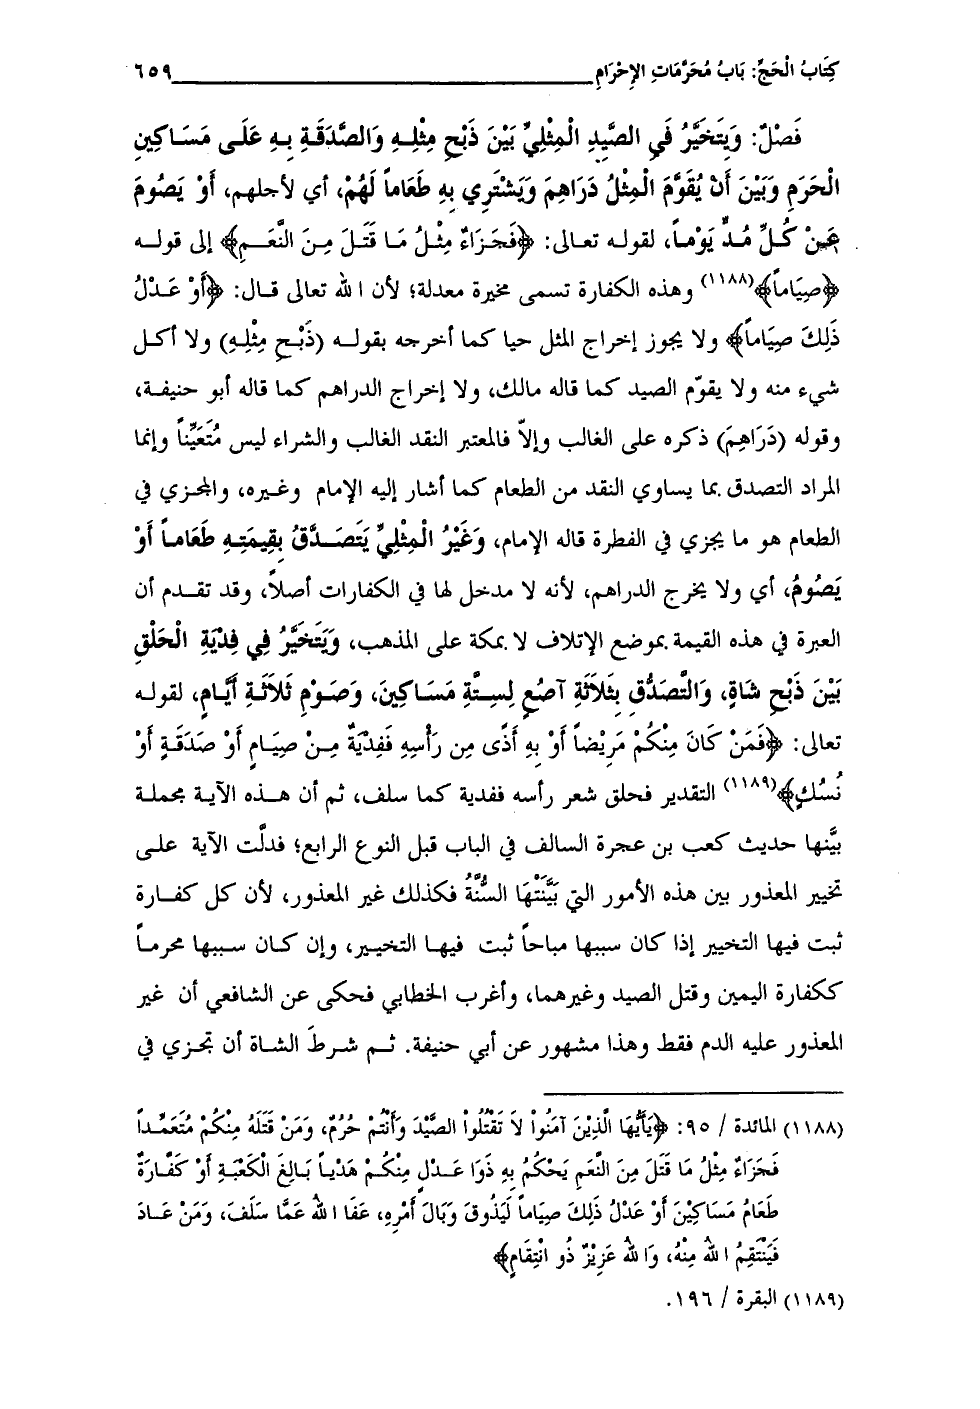 كِتَابُ الْحَجِّ: بَابُ مُحَرَّمَاتِ الإِحْرَامِ ٦٥٩
فَصْلٌ: وَيَتَخَيَّرُ فِي الصَّيدِ الْمِثْلِيِّ بَيْنَ ذَبْحِ مِثْلِهِ وَالصَّدَقَةِ بِهِ عَلَى مَسَاكِينِ
الْحَرَمِ وَبَيْنَ أَنْ يُقَوَّمَ الْمِثْلُ دَرَاهِمَ وَيَشْتَرِي بِهِ طَعَاماً لَهُمْ، أي لأجلهم، أَوْ يَصُومَ
عَنْ كُلِّ مُدٍّ يَوْماً، لقوله تعالى: ﴿فَجَزَاءٌ مِثْلُ مَا قَتَلَ مِنَ النَّعَمِ﴾ إلى قوله
﴿صِيَاماً﴾(١١٨٨) وهذه الكفارة تسمى مخيرة معدلة؛ لأن الله تعالى قال: ﴿أَوْ عَدْلُ
ذَلِكَ صِيَاماً﴾ ولا يجوز إخراج المثل حيا كما أخرجه بقوله (ذَبْحِ مِثْلِهِ) ولا أكل
شيء منه ولا يقوّم الصيد كما قاله مالك، ولا إخراج الدراهم كما قاله أبو حنيفة،
وقوله (دَرَاهِمَ) ذكره على الغالب وإلاّ فالمعتبر النقد الغالب والشراء ليس مُتَعَيِّناً وإنما
المراد التصدق بما يساوي النقد من الطعام كما أشار إليه الإمام وغيره، والمجزي في
الطعام هو ما يجزي في الفطرة قاله الإمام، وَغَيْرُ الْمِثْلِيِّ يَتَصَدَّقُ بِقِيمَتِهِ طَعَاماً أَوْ
يَصُومُ، أي ولا يخرج الدراهم، لأنه لا مدخل لها في الكفارات أصلاً، وقد تقدم أن
العبرة في هذه القيمة بموضع الإتلاف لا بمكة على المذهب، وَيَتَخَيَّرُ فِي فِدْيَةِ الْحَلْقِ
بَيْنَ ذَبْحِ شَاةٍ، وَالتَّصَدُّقِ بِثَلاَثَةِ آصُعٍ لِسِتَّةِ مَسَاكِينَ، وَصَوْمِ ثَلاَثَةِ أَيَّامٍ، لقوله
تعالى: ﴿فَمَنْ كَانَ مِنْكُمْ مَرِيْضاً أَوْ بِهِ أَذًى مِن رَأْسِهِ فَفِدْيَةٌ مِنْ صِيَامٍ أَوْ صَدَقَةٍ أَوْ
نُسُكٍ﴾(١١٨٩) التقدير فحلق شعر رأسه ففدية كما سلف، ثم أن هذه الآية مجملة
بيَّنها حديث كعب بن عجرة السالف في الباب قبل النوع الرابع؛ فدلَّت الآية على
تخيير المعذور بين هذه الأمور التي بَيَّنَتْهَا السُّنَّةُ فكذلك غير المعذور، لأن كل كفارة
ثبت فيها التخيير إذا كان سببها مباحاً ثبت فيها التخيير، وإن كان سببها محرماً
ككفارة اليمين وقتل الصيد وغيرهما، وأغرب الخطابي فحكى عن الشافعي أن غير
المعذور عليه الدم فقط وهذا مشهور عن أبي حنيفة. ثم شرطَ الشاة أن تجزي في
(١١٨٨) المائدة / ٩٥: ﴿يَأَيُّهَا الَّذِيْنَ آمَنُواْ لاَ تَقْتُلُواْ الصَّيْدَ وَأَنْتُمْ حُرُمٌ، وَمَنْ قَتَلَهُ مِنْكُمْ مُتَعَمِّداً
فَجَزَاءٌ مِثْلُ مَا قَتَلَ مِنَ النَّعَمِ يَحْكُمُ بِهِ ذَوَا عَدْلٍ مِنْكُمْ هَدْياً بَالِغَ الْكَعْبَةِ أَوْ كَفَّارَةٌ
طَعَامُ مَسَاكِيْنَ أَوْ عَدْلُ ذَلِكَ صِيَاماً لَيَذُوقَ وَبَالَ أَمْرِهِ، عَفَا اللهُ عَمَّا سَلَفَ، وَمَنْ عَادَ
فَيَنْتَقِمُ اللهُ مِنْهُ، وَاللهُ عَزِيْزٌ ذُو انْتِقَامٍ﴾
(١١٨٩) البقرة / ١٩٦.